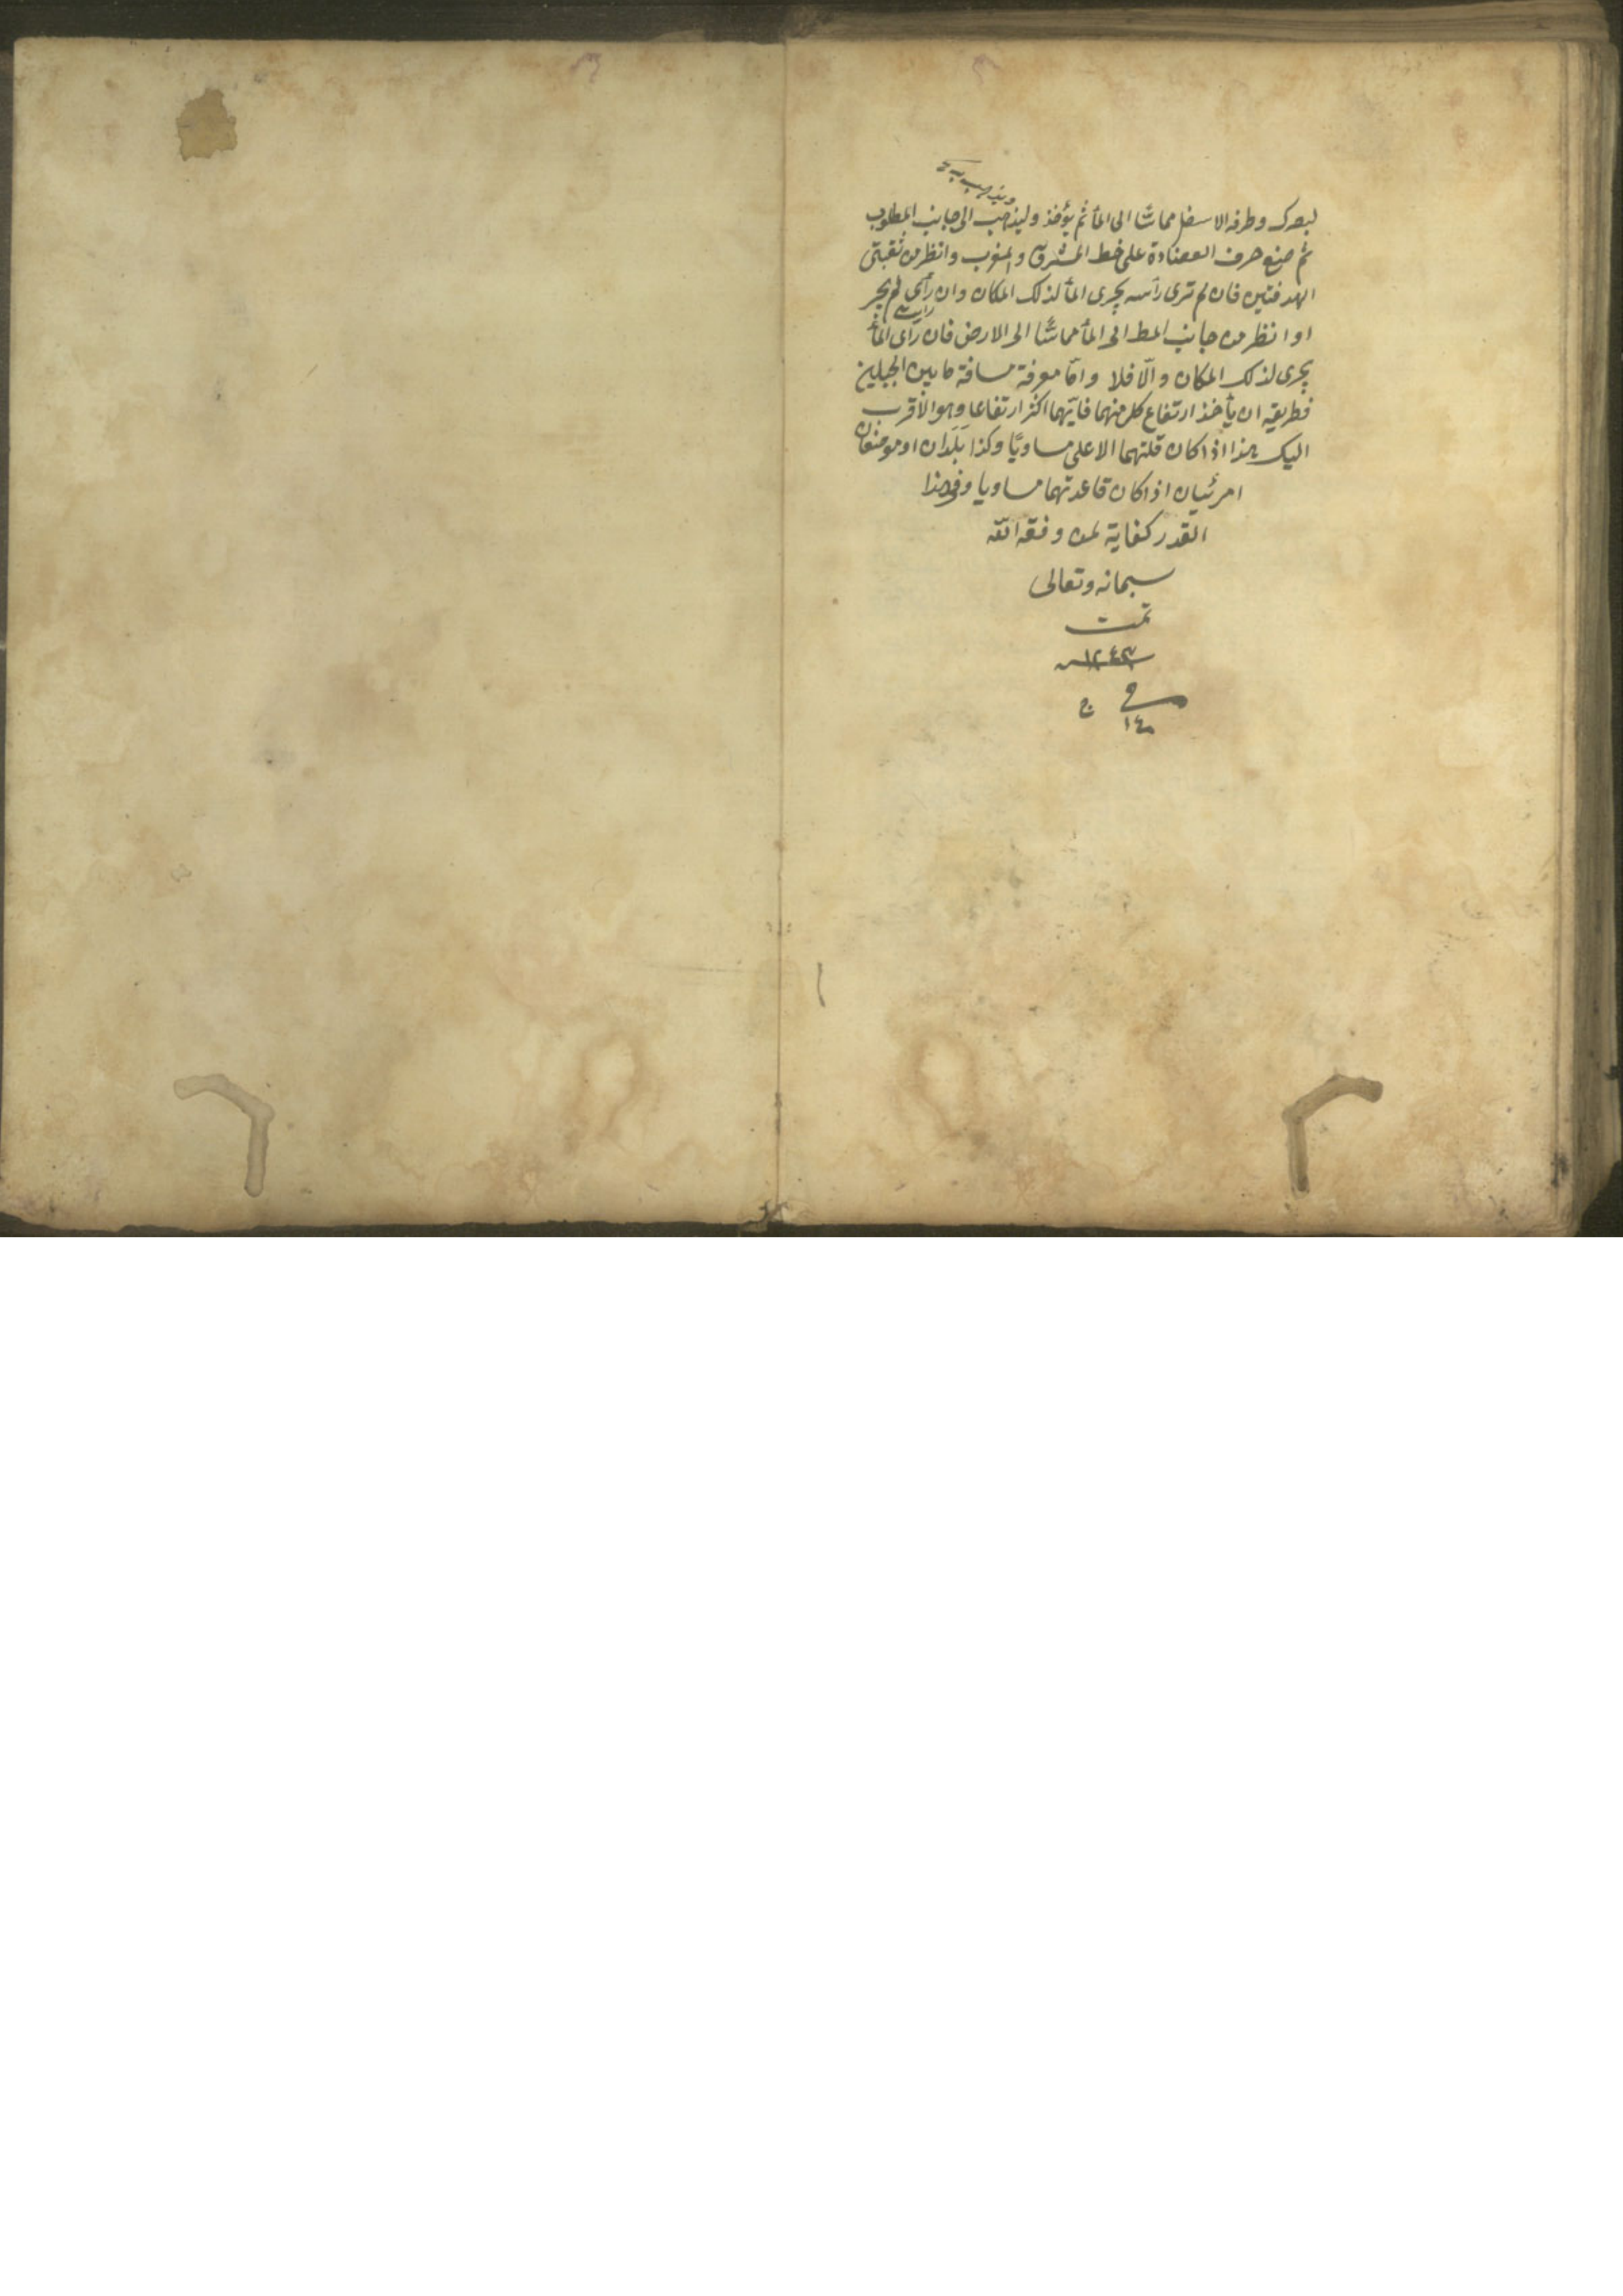 ويذهب به
لبصرك وطرفه الاسفل مماسّا الى المأ ثم يؤخذ وليذهب الى جانب المطلوب
ثم ضع حرف العضادة على خط المشرق والمغرب وانظر من ثقبتى
الهدفتين فان لم ترى رأسه يجرى المأ لذلك المكان وان رأى لم يجر
رأسه
او انظر من جانب المط الى المأ مماسًّا الى الارض فان رأى المأ
يجرى لذلك المكان والّا فلا وامّا معرفة مسافة ما بين الجبلين
فطريقه ان يأخذ ارتفاع كل منهما فايّهما اكثر ارتفاعا وهو الاقرب
اليك هذا اذا كان قلتهما الاعلى مساويًا وكذا بلدان او موضعان
امرئيان اذا كان قاعدتهما مساويا وفى هذا
القدر كفاية لمن وفقه اللّه
سبحانه وتعالى
تمت
١٢٤٣
١٤